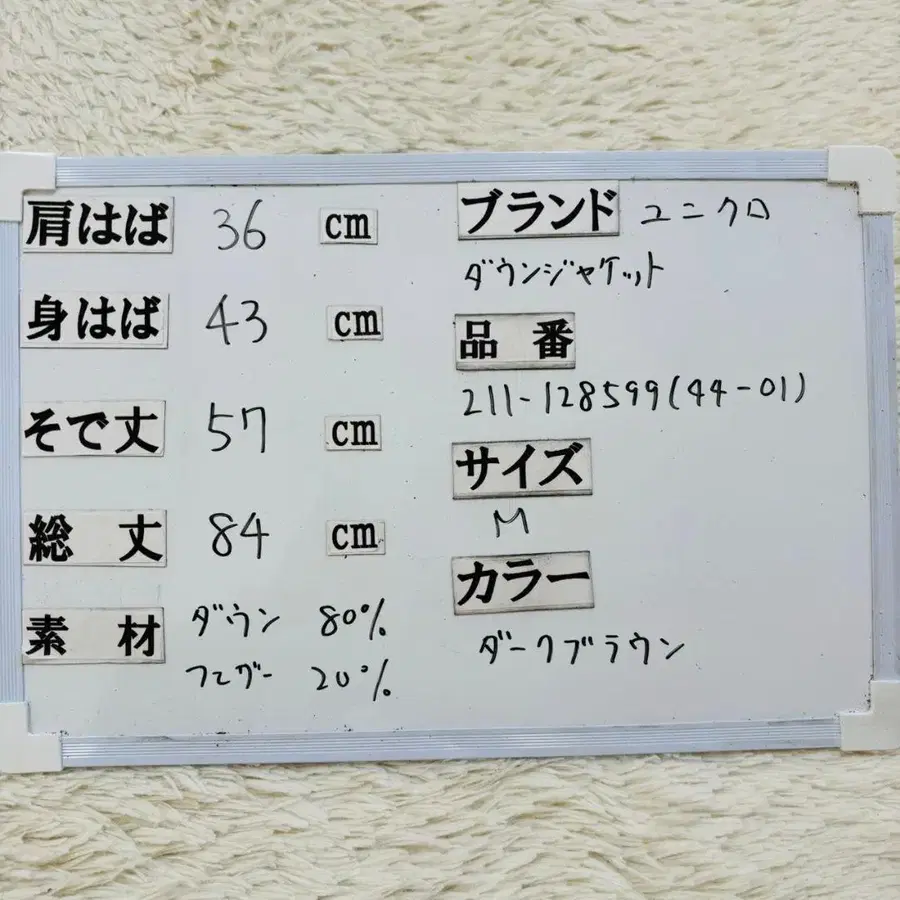 肩はば 36 cm
身はば 43 cm
そで丈 57 cm
総 丈 84 cm
素 材 ダウン 80%
フェザー 20%
ブランド ユニクロ
ダウンジャケット
品 番
211-128599(44-01)
サイズ
M
カラー
ダークブラウン